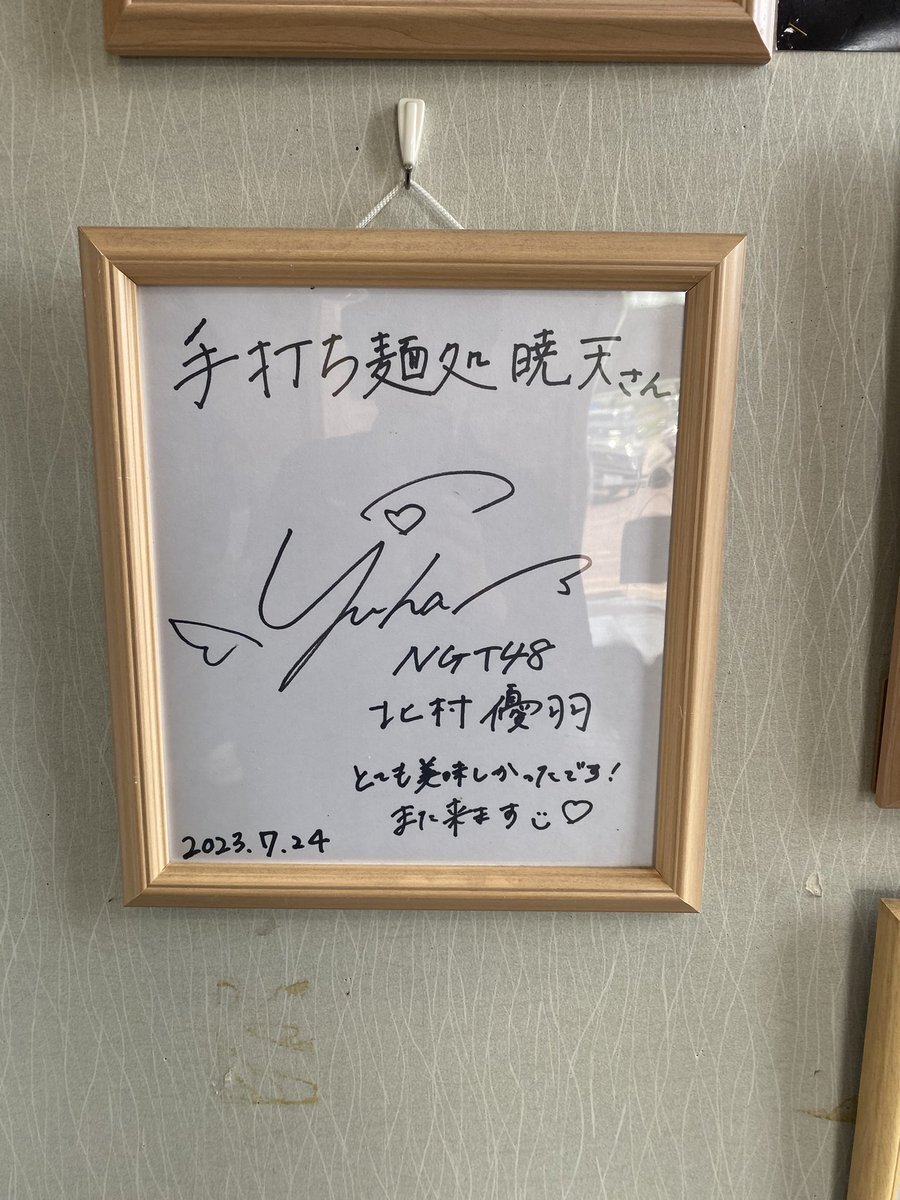 手打ち麺処 暁天さん
Yuha
NGT48
北村優羽
とても美味しかったです!
また来ます
2023.7.24